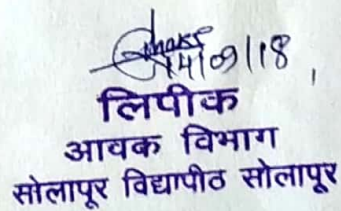 14/09/18
लिपीक
आवक विभाग
सोलापूर विद्यापीठ सोलापूर